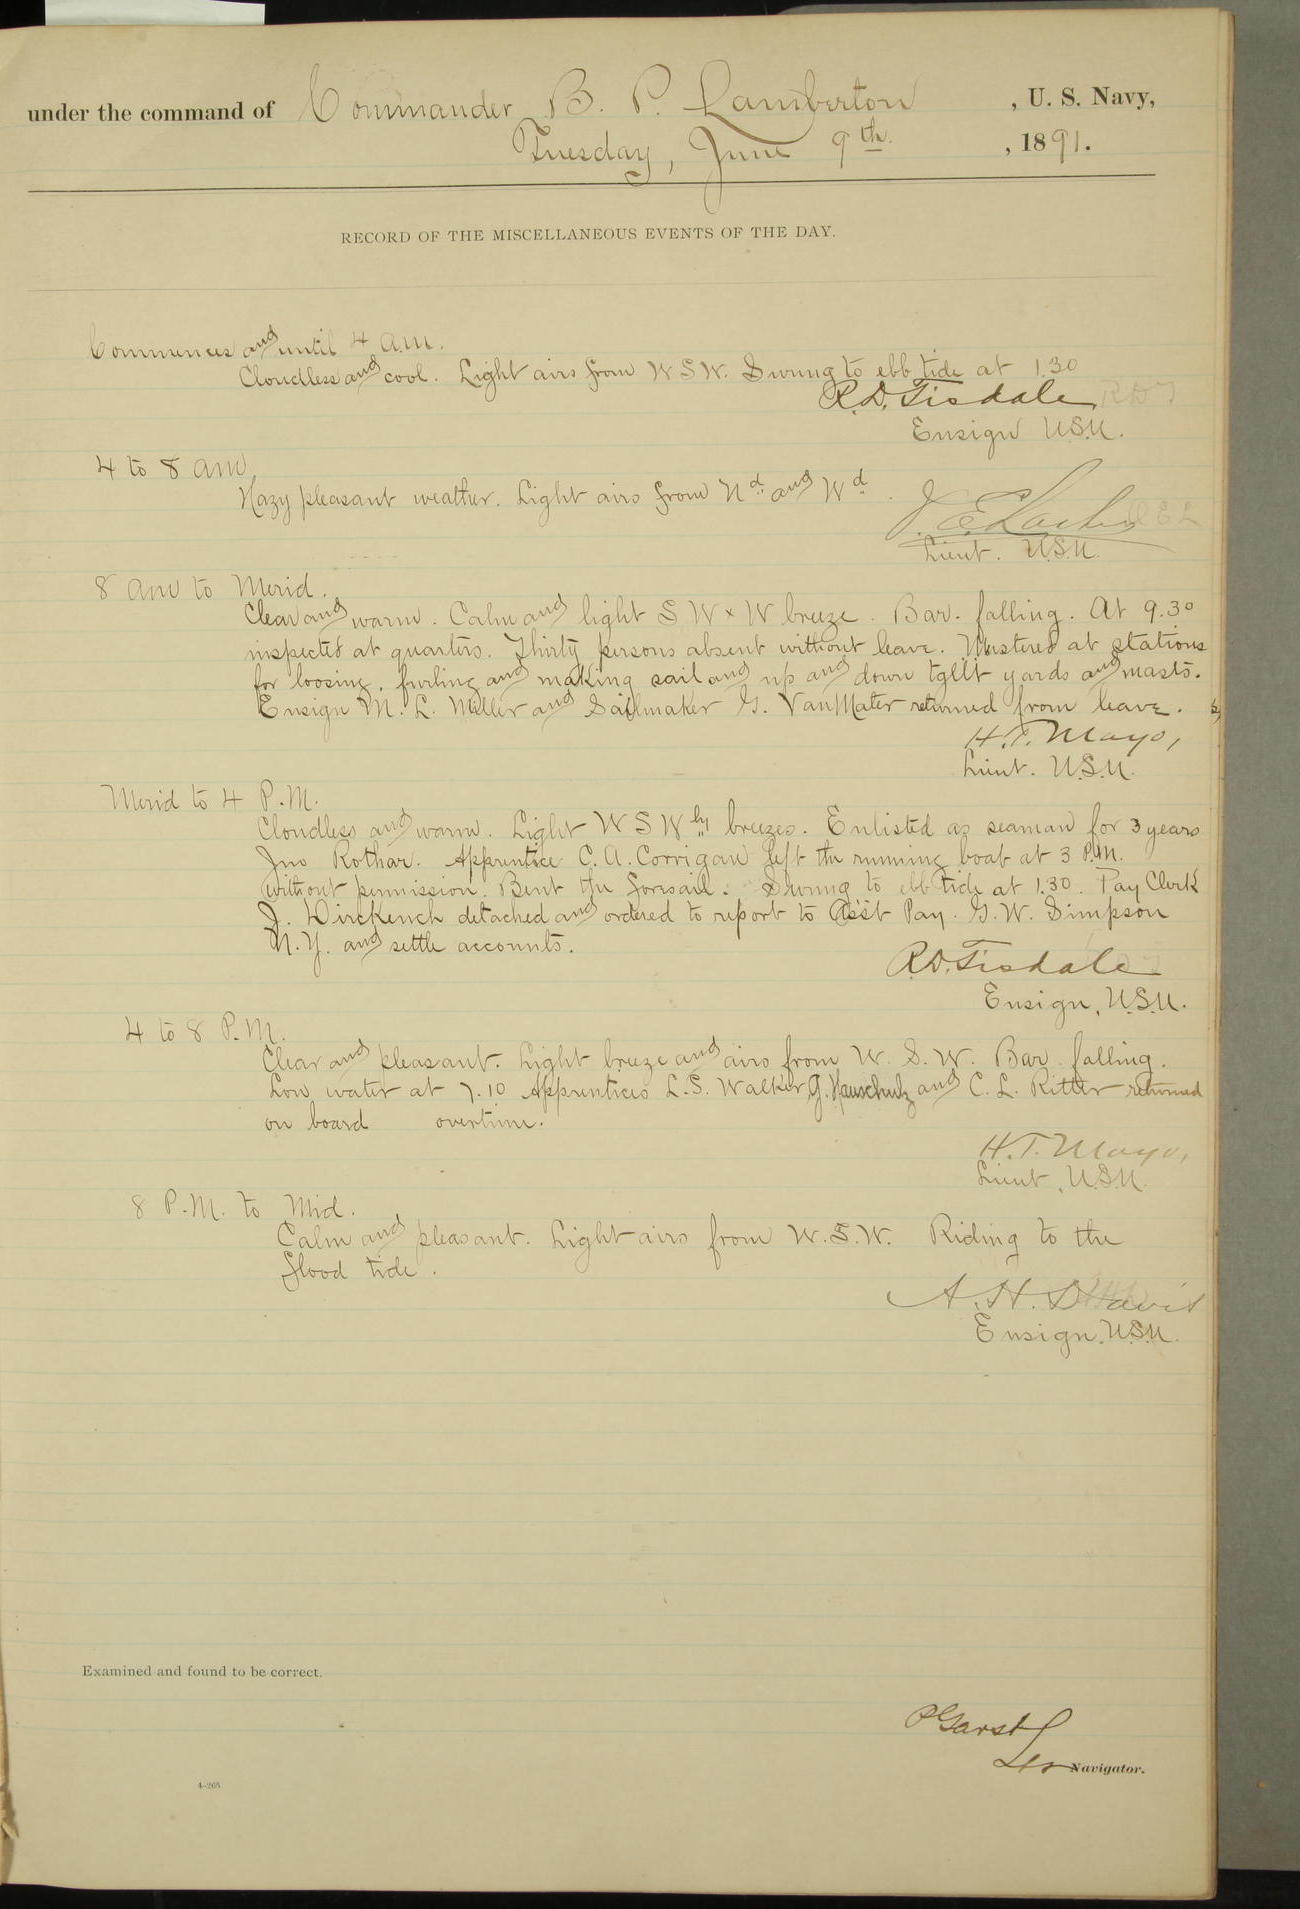 under the command of Commander B. P. Lamberton , U. S. Navy,
Tuesday, June 9th. , 1891.
RECORD OF THE MISCELLANEOUS EVENTS OF THE DAY.
Commences and until 4 a.m.
Cloudless and cool. Light airs from W S W. Swung to ebb tide at 1.30
R.D. Tisdale R D T
Ensign U.S.N.
4 to 8 am.
Hazy pleasant weather. Light airs from Nd. and Wd.
J. E.
Lieut. U.S.N.
8 am to Merid.
Clear and warm. Calm and light S W x W breeze. Bar. falling. At 9.30
inspected at quarters. Thirty persons absent without leave. Mustered at stations
for loosing, furling and making sail and up and down tgllt yards and masts.
Ensign M. L. Miller and Sailmaker G. Van Mater returned from leave.
H.T. Mayo,
Lieut. U.S.N.
Merid to 4 P.M.
Cloudless and warm. Light W S W ly breezes. Enlisted as seaman for 3 years
Jno Rothar. Apprentice C. A. Corrigan left the running boat at 3 P.M.
without permission. Bent the foresail. Swung to ebb tide at 1.30. Pay Clerk
J. detached and ordered to report to Ass't Pay. G. W. Simpson
N.Y. and settle accounts.
R.D. Tisdale
Ensign, U.S.N.
4 to 8 P.M.
Clear and pleasant. Light breeze and airs from W. S. W. Bar falling.
Low water at 7.10 Apprentices L.S. Walker, G. Hauschulz and C. L. Ritter returned
on board overtime.
H.T. Mayo,
Lieut, U.S.N.
8 P.M. to Mid.
Calm and pleasant. Light airs from W.S.W. Riding to the
flood tide.
A. H. Davis
Ensign, U.S.N.
Examined and found to be correct.
P Garst
Navigator.
4–265